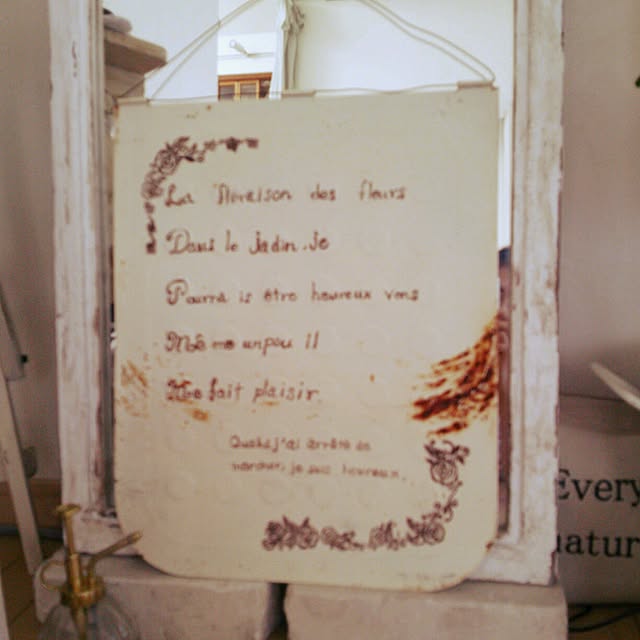 La floraison des fleurs
Dans le Jadin. Je
Pourra is être heureux vous
Même unpou il
Me fait plaisir.
Quand j'ai arrêté de
marcher, je suis heureux.
Every
natur